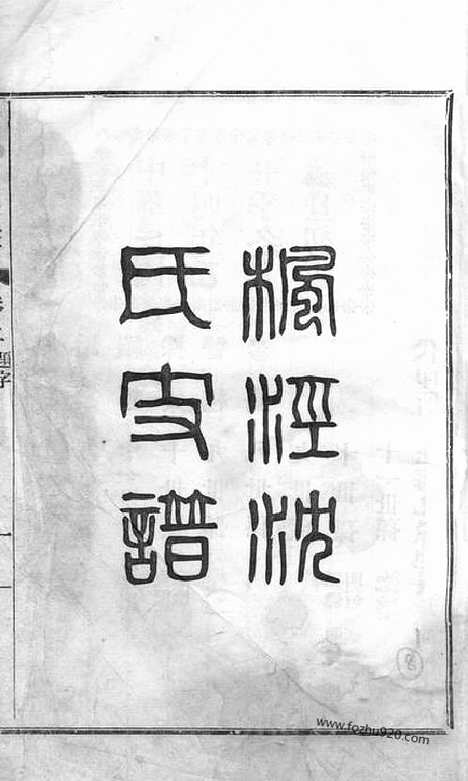 楓涇沈
氏支譜
題字
一
8
www.fozhu920.com